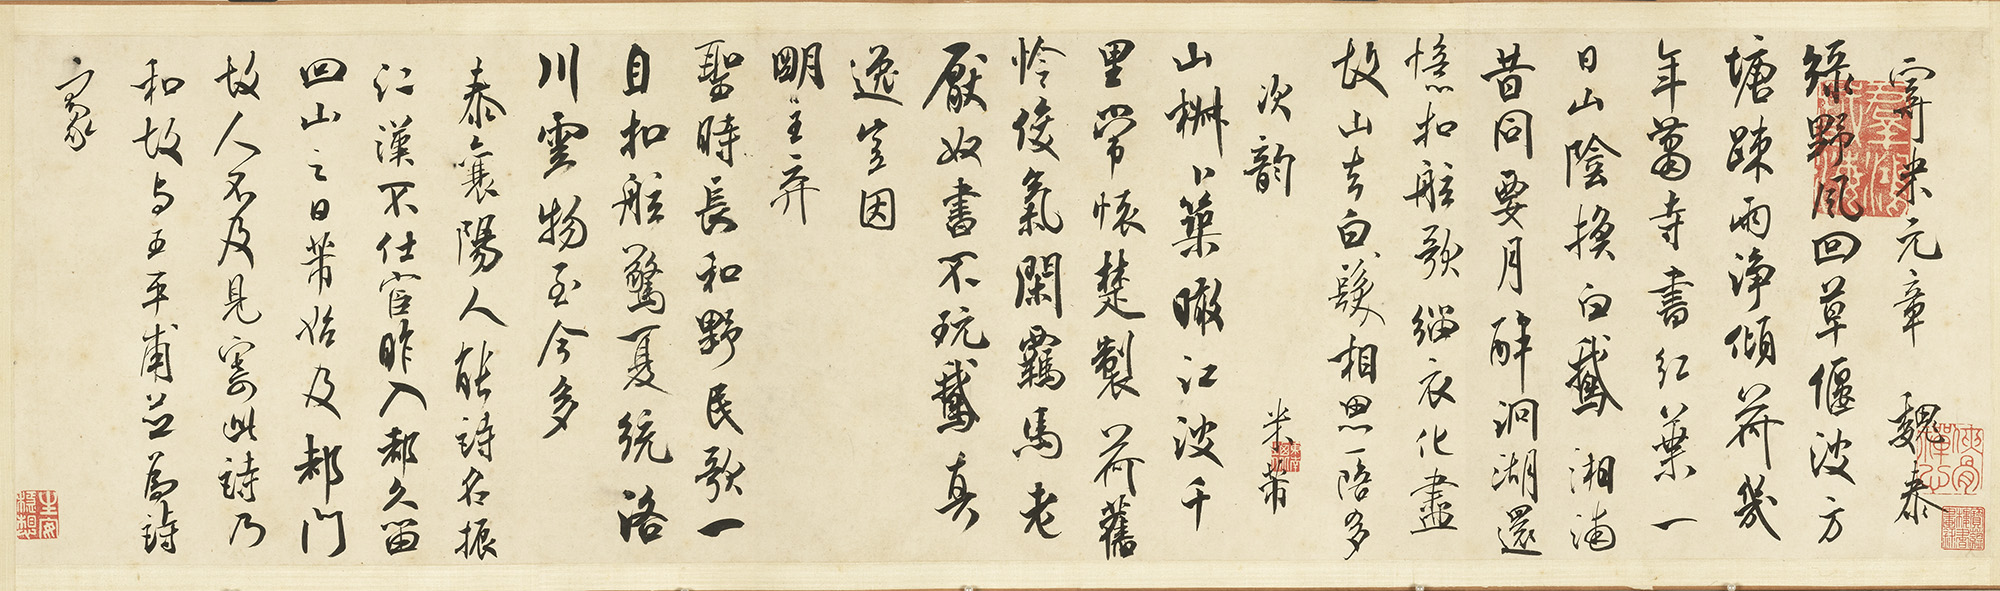 寄米元章 魏泰
綠野風回草偃波方
塘疎雨淨傾荷幾
年蕭寺書紅葉一
日山陰換白鵝湘浦
昔同要月醉洞湖還
憶扣舷歌緇衣化盡
故山去白髮相思一陪多
次韻 米芾
山椒卜築瞰江波千
里常懷楚製荷舊
怜俊氣閑羈馬老
厭奴書不玩鵝真
逸豈因
明主弃
聖時長和野民歌一
自扣舷驚夏統洛
川雲物至今多
泰襄陽人能詩名振
江漢不仕宦昨入都久留
回山之日芾始及都門
故人不及見寄此詩乃
和故与王平甫並為詩
豪